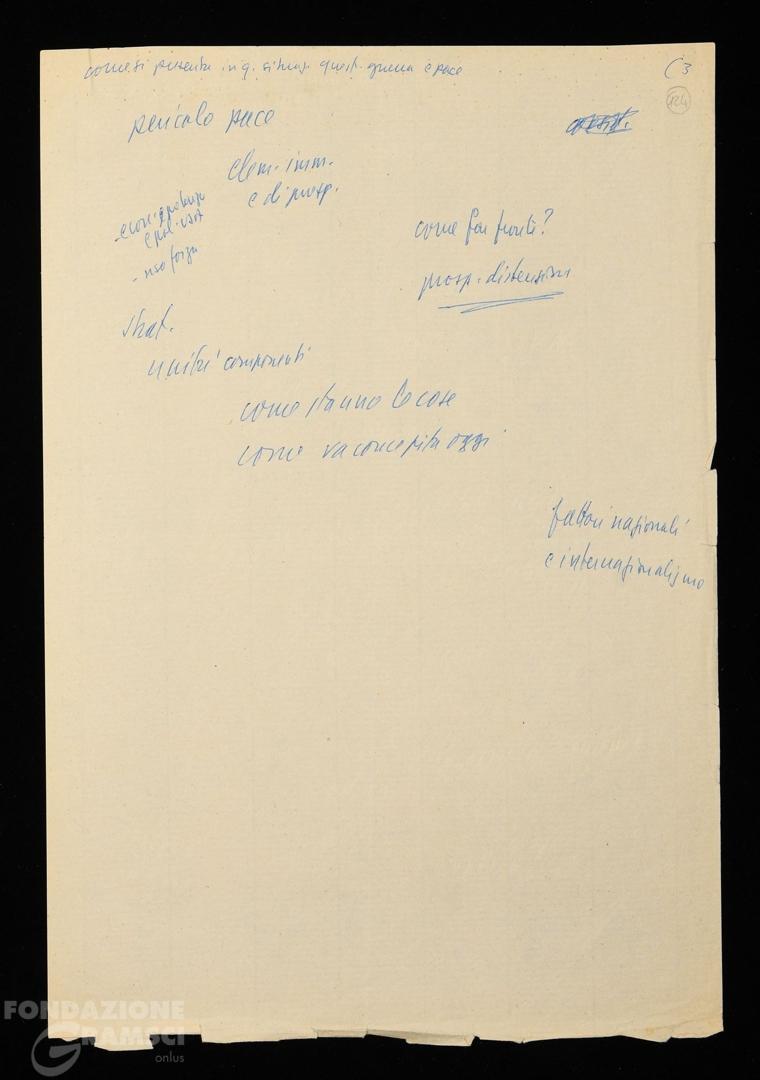 come si presenta in q. situaz. quest. guerra e pace
C 3
124
pericolo pace
elem. imm.
e di prosp.
e pol. USA
- uso forza
come far fronte?
prosp. distensione
strat.
unità componenti
come stanno le cose
come va concepita oggi
fattori nazionali
e internazionalismo
FONDAZIONE
GRAMSCI
onlus